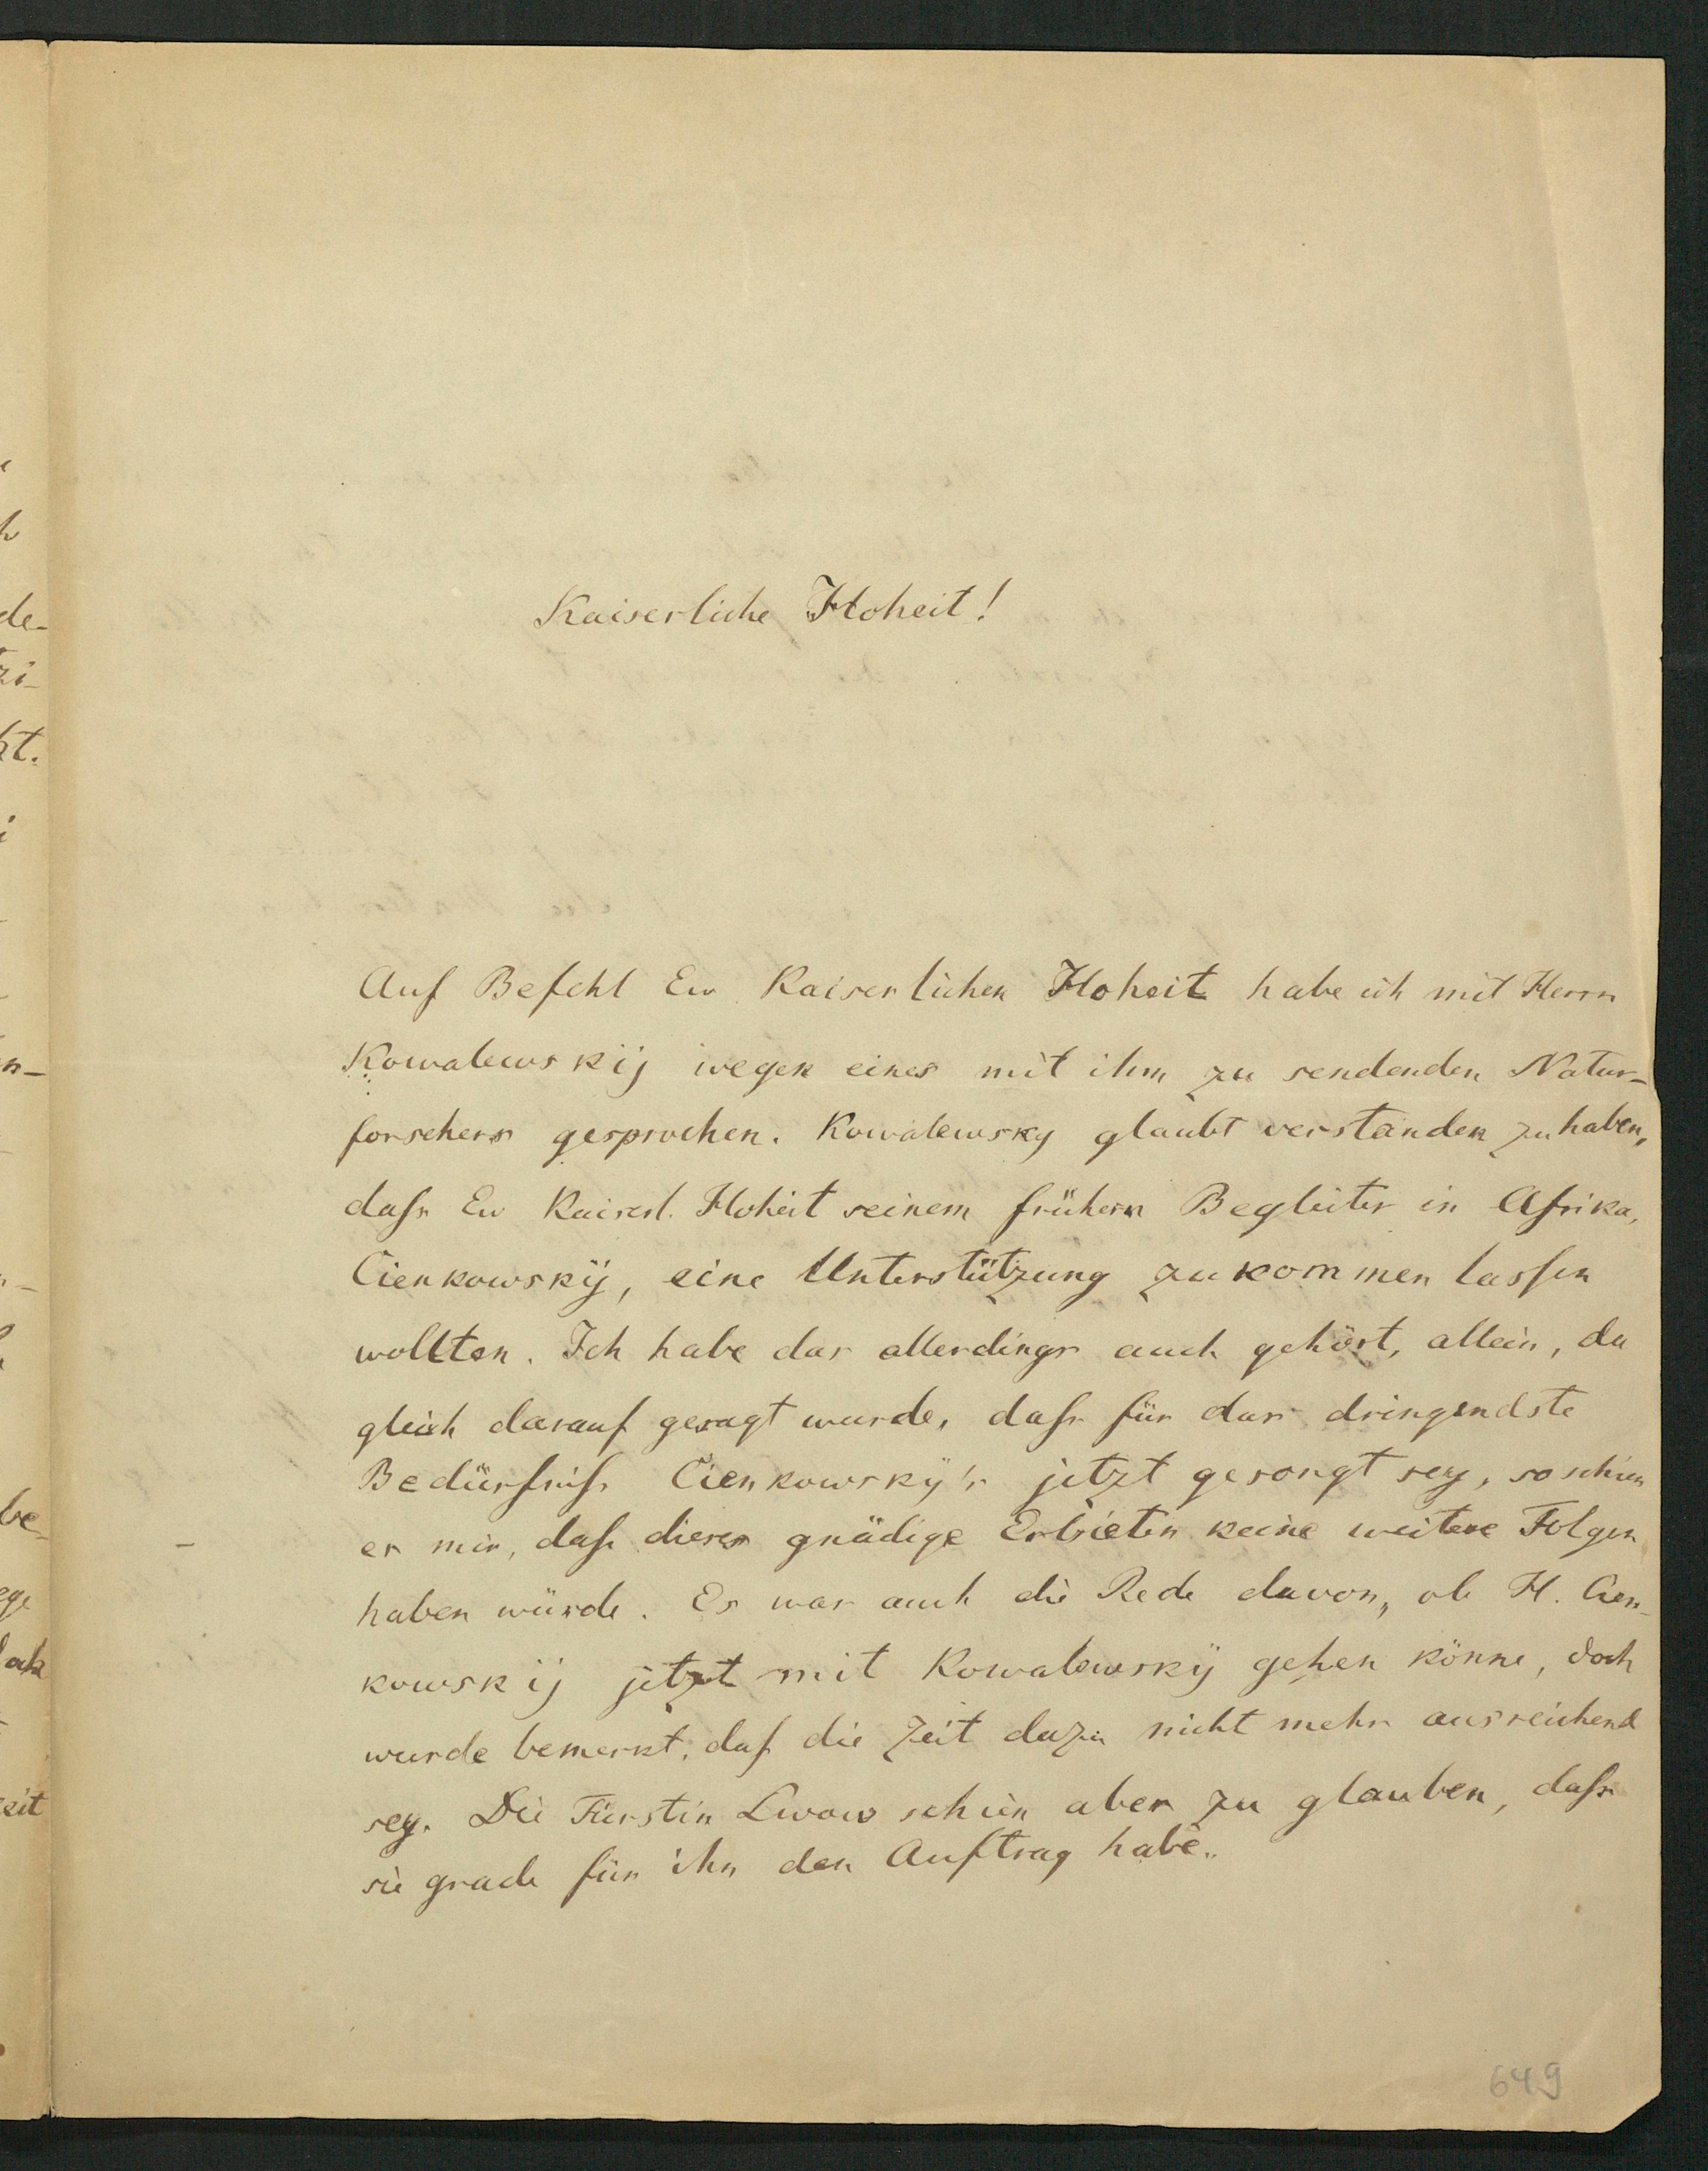 Kaiserliche Hoheit!
Auf Befehl Ew Kaiserlichen Hoheit habe ich mit Herrn
Kowalewskij wegen eines mit ihm zu sendenden Natur-
forschers gesprochen. Kowalewsky glaubt verstanden zu haben,
dafs Ew Kaiserl. Hoheit seinem frühern Begleiter in Afrika,
Cienkowskÿ, eine Unterstützung zukommen lassen
wollten. Ich habe das allerdings auch gehört, allein, da
gleich darauf gesagt wurde, dafs für das dringendste
Bedürfnifs Cienkowsky's jetzt gesorgt sey, so schien
es mir, dafs dieses gnädige Erbieten keine weitere Folgen
haben würde. Es war auch die Rede davon, ob H. Cien-
kowskij jetzt mit Kowalewskÿ gehen könne, doch
wurde bemerkt, dafs die Zeit dazu nicht mehr ausreichend
sey. Die Fürstin Lwow schien aber zu glauben, dafs
sie grade für ihn den Auftrag habe.
649
de-
zi-
kt.
n-
be-
ege
eit